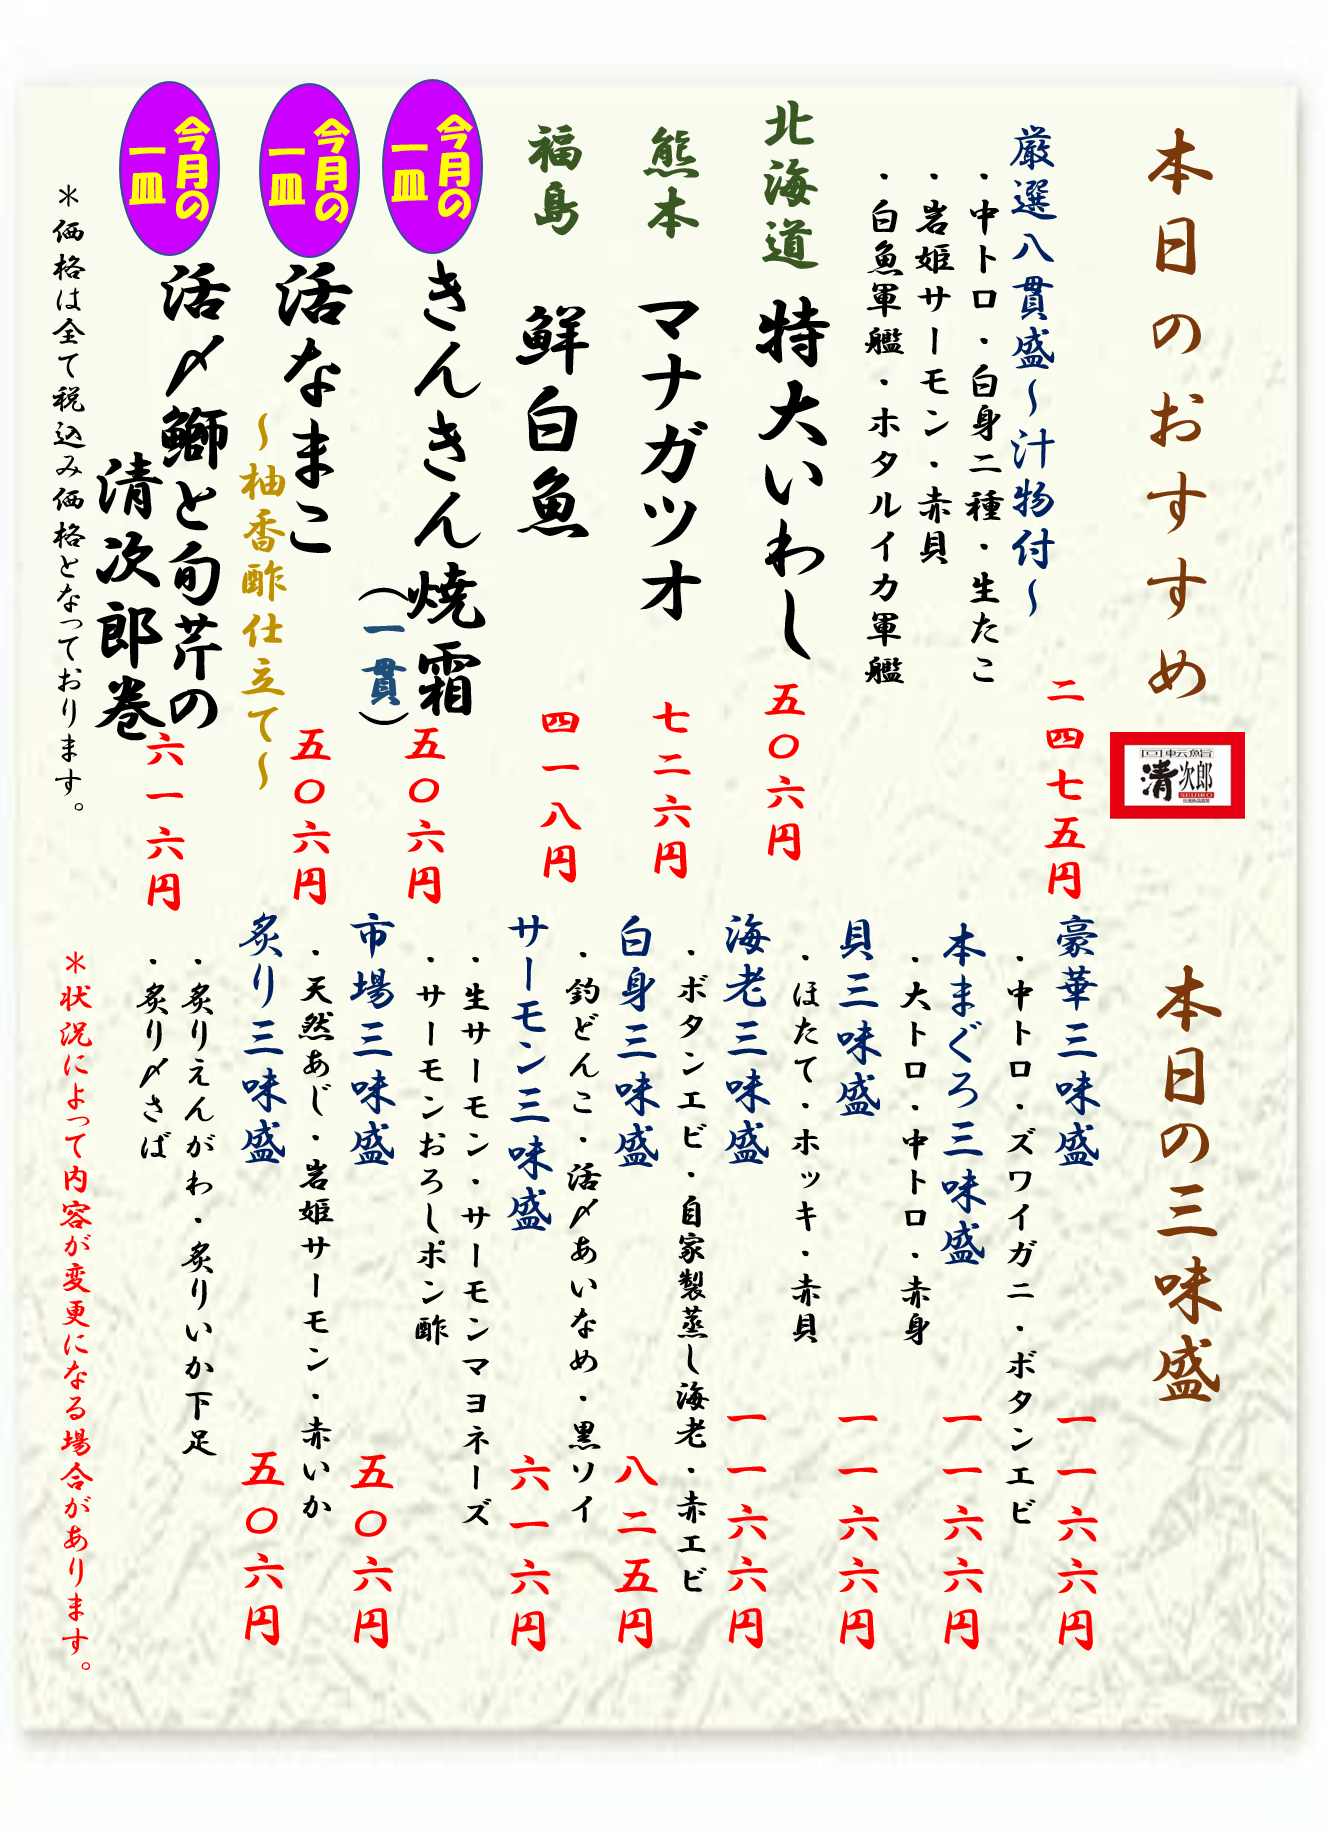 本日のおすすめ
回転鮨
清次郎
SEIJIRO
厳選八貫盛～汁物付～
二四七五円
・中トロ・白身二種・生たこ
・岩姫サーモン・赤貝
・白魚軍艦・ホタルイカ軍艦
北海道 特大いわし 五〇六円
熊本 マナガツオ 七二六円
福島 鮮白魚 四一八円
今月の
一皿
きんきん焼霜
（一貫）
五〇六円
今月の
一皿
活なまこ
～柚香酢仕立て～
五〇六円
今月の
一皿
活〆鰤と旬芹の
清次郎巻
六一六円
＊価格は全て税込み価格となっております。
本日の三味盛
豪華三味盛 一一六六円
・中トロ・ズワイガニ・ボタンエビ
本まぐろ三味盛 一一六六円
・大トロ・中トロ・赤身
貝三味盛 一一六六円
・ほたて・ホッキ・赤貝
海老三味盛 一一六六円
・ボタンエビ・自家製蒸し海老・赤エビ
白身三味盛 八二五円
・釣どんこ・活〆あいなめ・黒ソイ
サーモン三味盛 六一六円
・生サーモン・サーモンマヨネーズ
・サーモンおろしポン酢
市場三味盛 五〇六円
・天然あじ・岩姫サーモン・赤いか
炙り三味盛 五〇六円
・炙りえんがわ・炙りいか下足
・炙り〆さば
＊状況によって内容が変更になる場合があります。